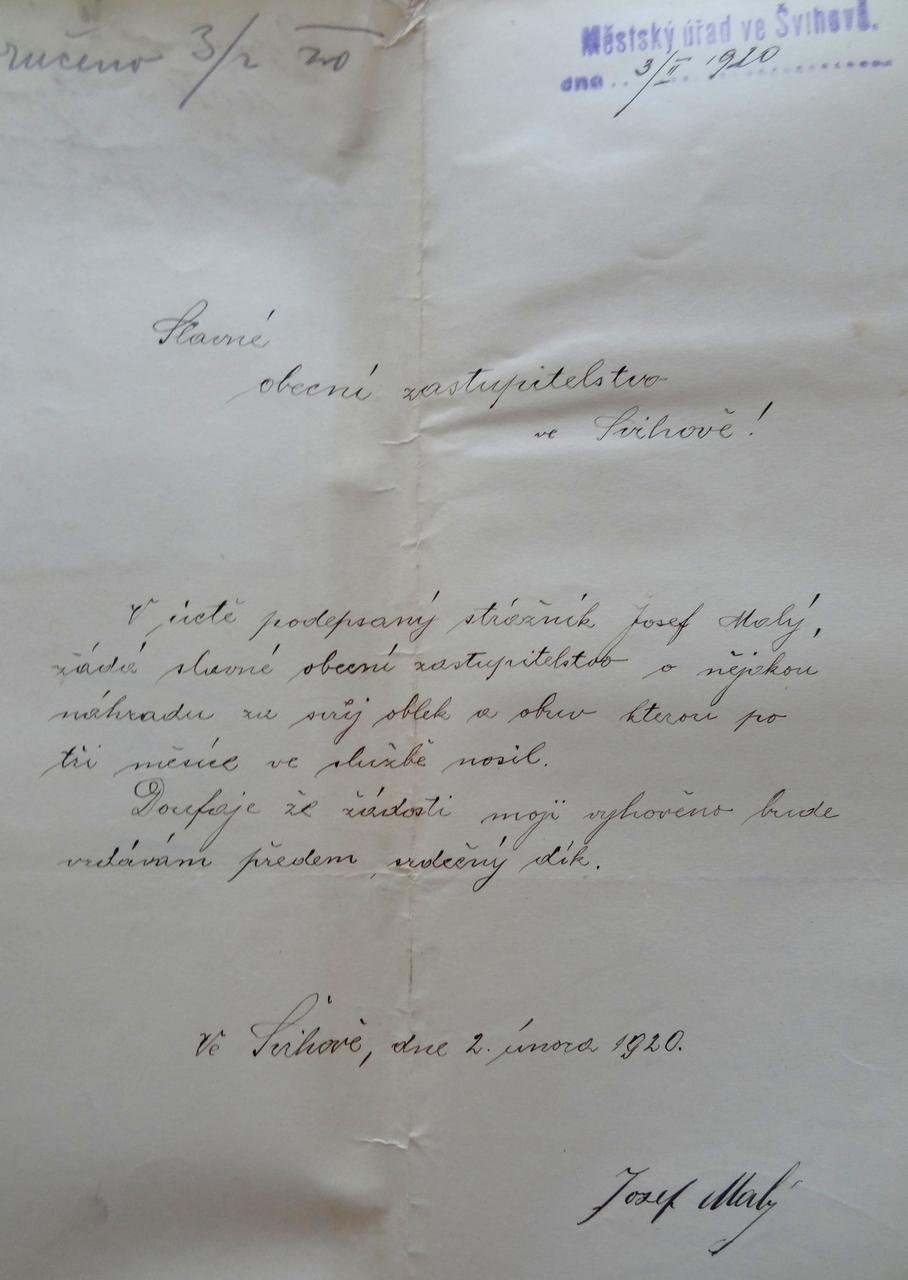 ručeno 3/2 20
Městský úřad ve Švihově.
dne 3/II 1920
Slavné
obecní zastupitelstvo
ve Švihově!
V úctě podepsaný strážník Josef Malý,
žádá slavné obecní zastupitelstvo o nějakou
náhradu za svůj oblek a obuv kterou po
tři měsíce ve službě nosil.
Doufaje že žádosti moji vyhověno bude
vzdávám předem srdečný dík.
Ve Švihově, dne 2. února 1920.
Josef Malý